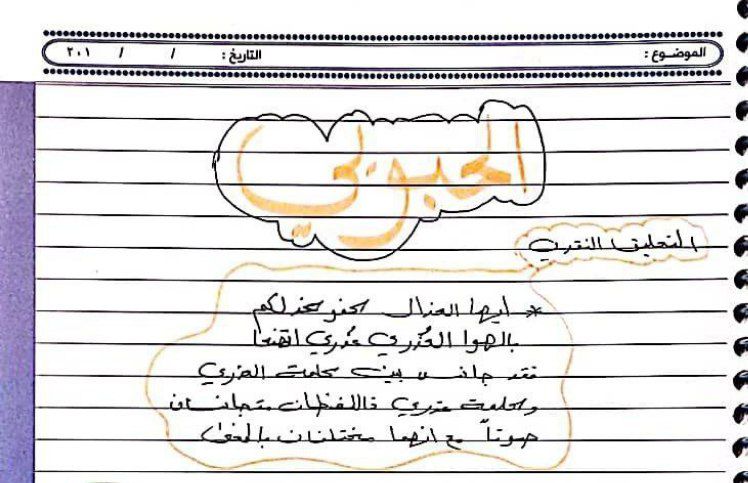 الموضوع :
التاريخ : / / ٢٠١
الحبوبي
التعليق النقدي
* ايها العذال كفو عذلكم
بالهوا العُذري عُذري اتضحا
فقد جانس بين كلمة العذري
وكلمة عذري فاللفظان متجانسان
صوتاً مع انهما مختلفان بالمعنى